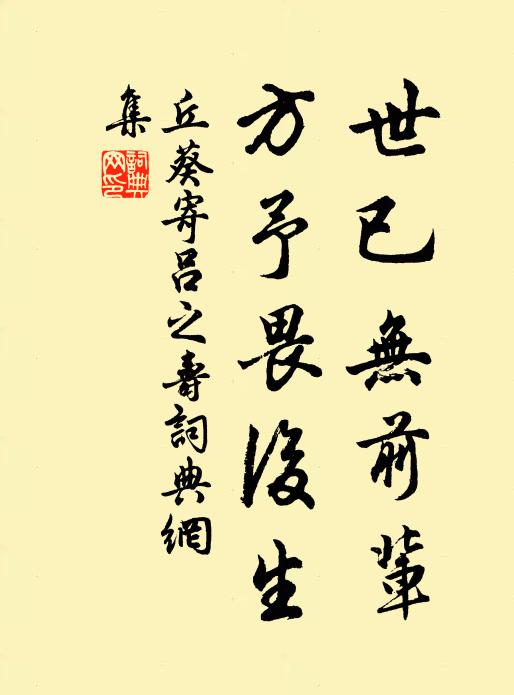 世已無前輩
方予畏後生
丘葵寄呂之壽詞典網
集
詞典
网印